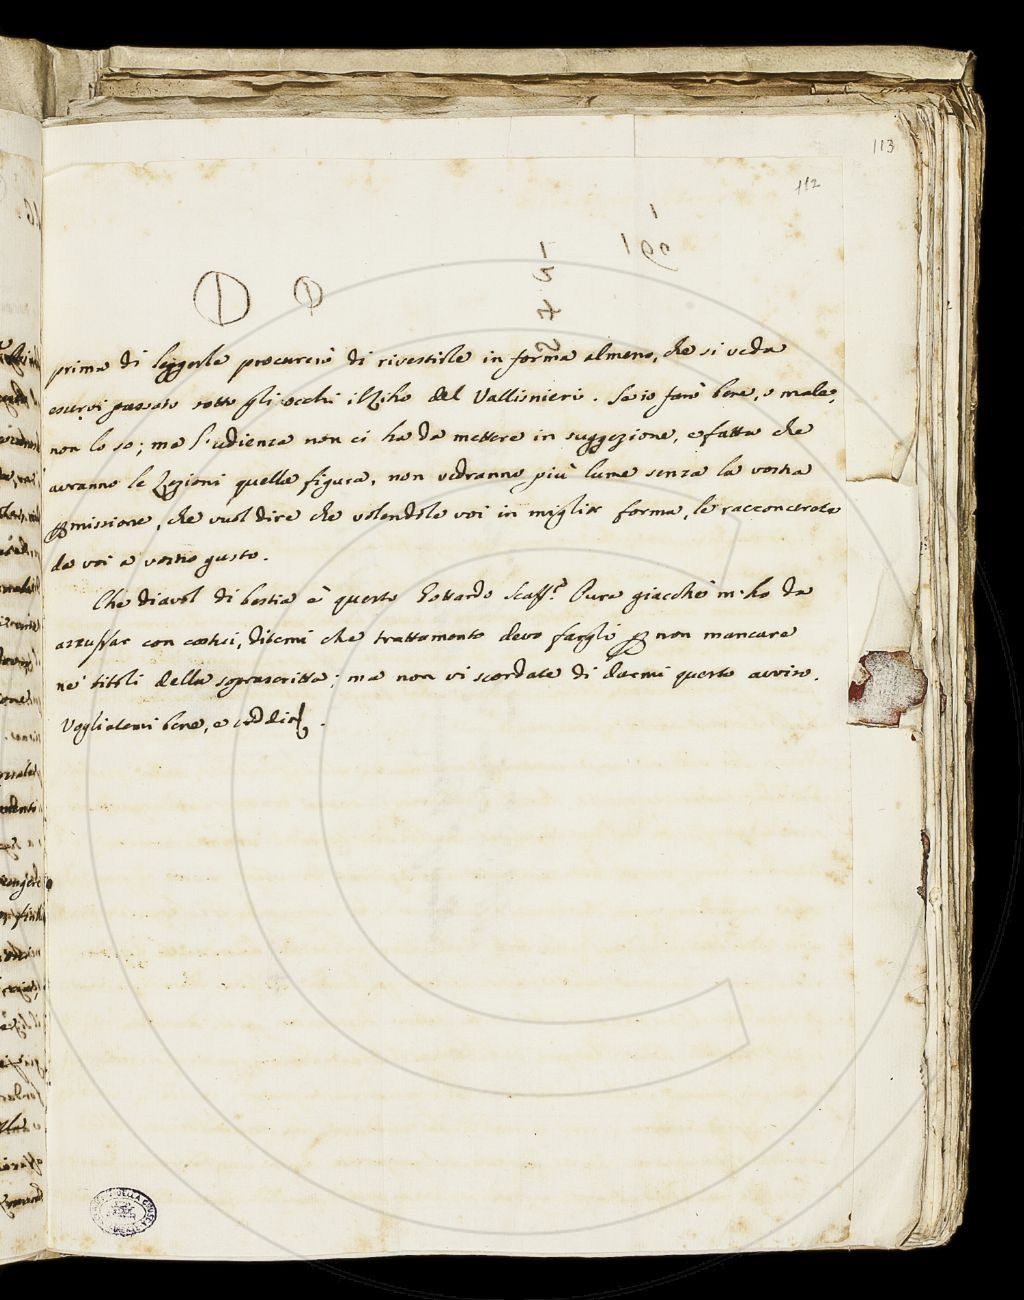 113
112
prima di leggerle procurerò di rivestirle in forma almeno, che si veda
esservi passato sotto gli occhi il libro del Vallisnieri. Se io farò bene, o male,
non lo so; ma l'udienza non ci ha da mettere in suggezione, e fatta che
avranno le Lezioni quella figura, non vedranno più lume senza la vostra
ꝑmissione, che vuol dire che volendole voi in miglior forma, le racconcerete
da voi a vostro gusto.
Che diavol di bestia è questo Gottardo Scaff.? Pure giacchè m'ho da
azzuffar con costui, ditemi che trattamento devo fargli ꝑ non mancare
ne' titoli della soprascritta; ma non vi scordate di darmi questo avviso.
Vogliatemi bene, e addio.